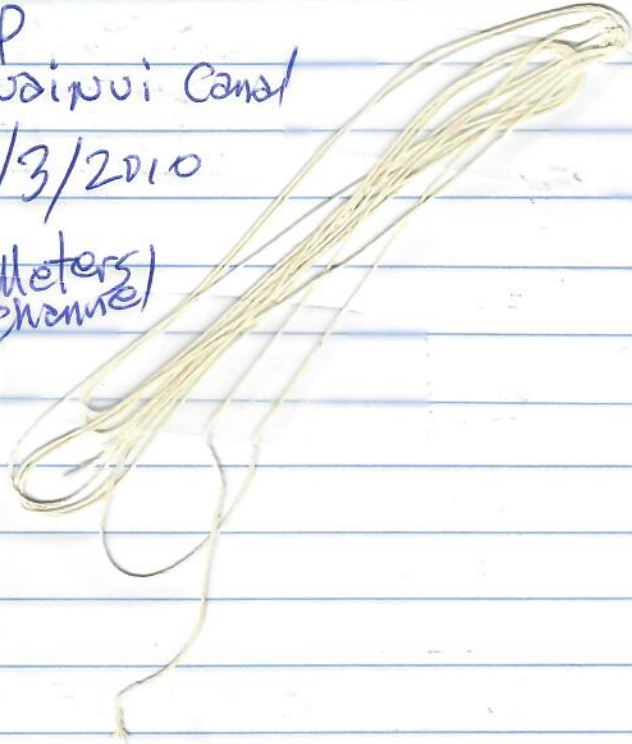 P
wainui Canal
/3/2010
Meters/
channel